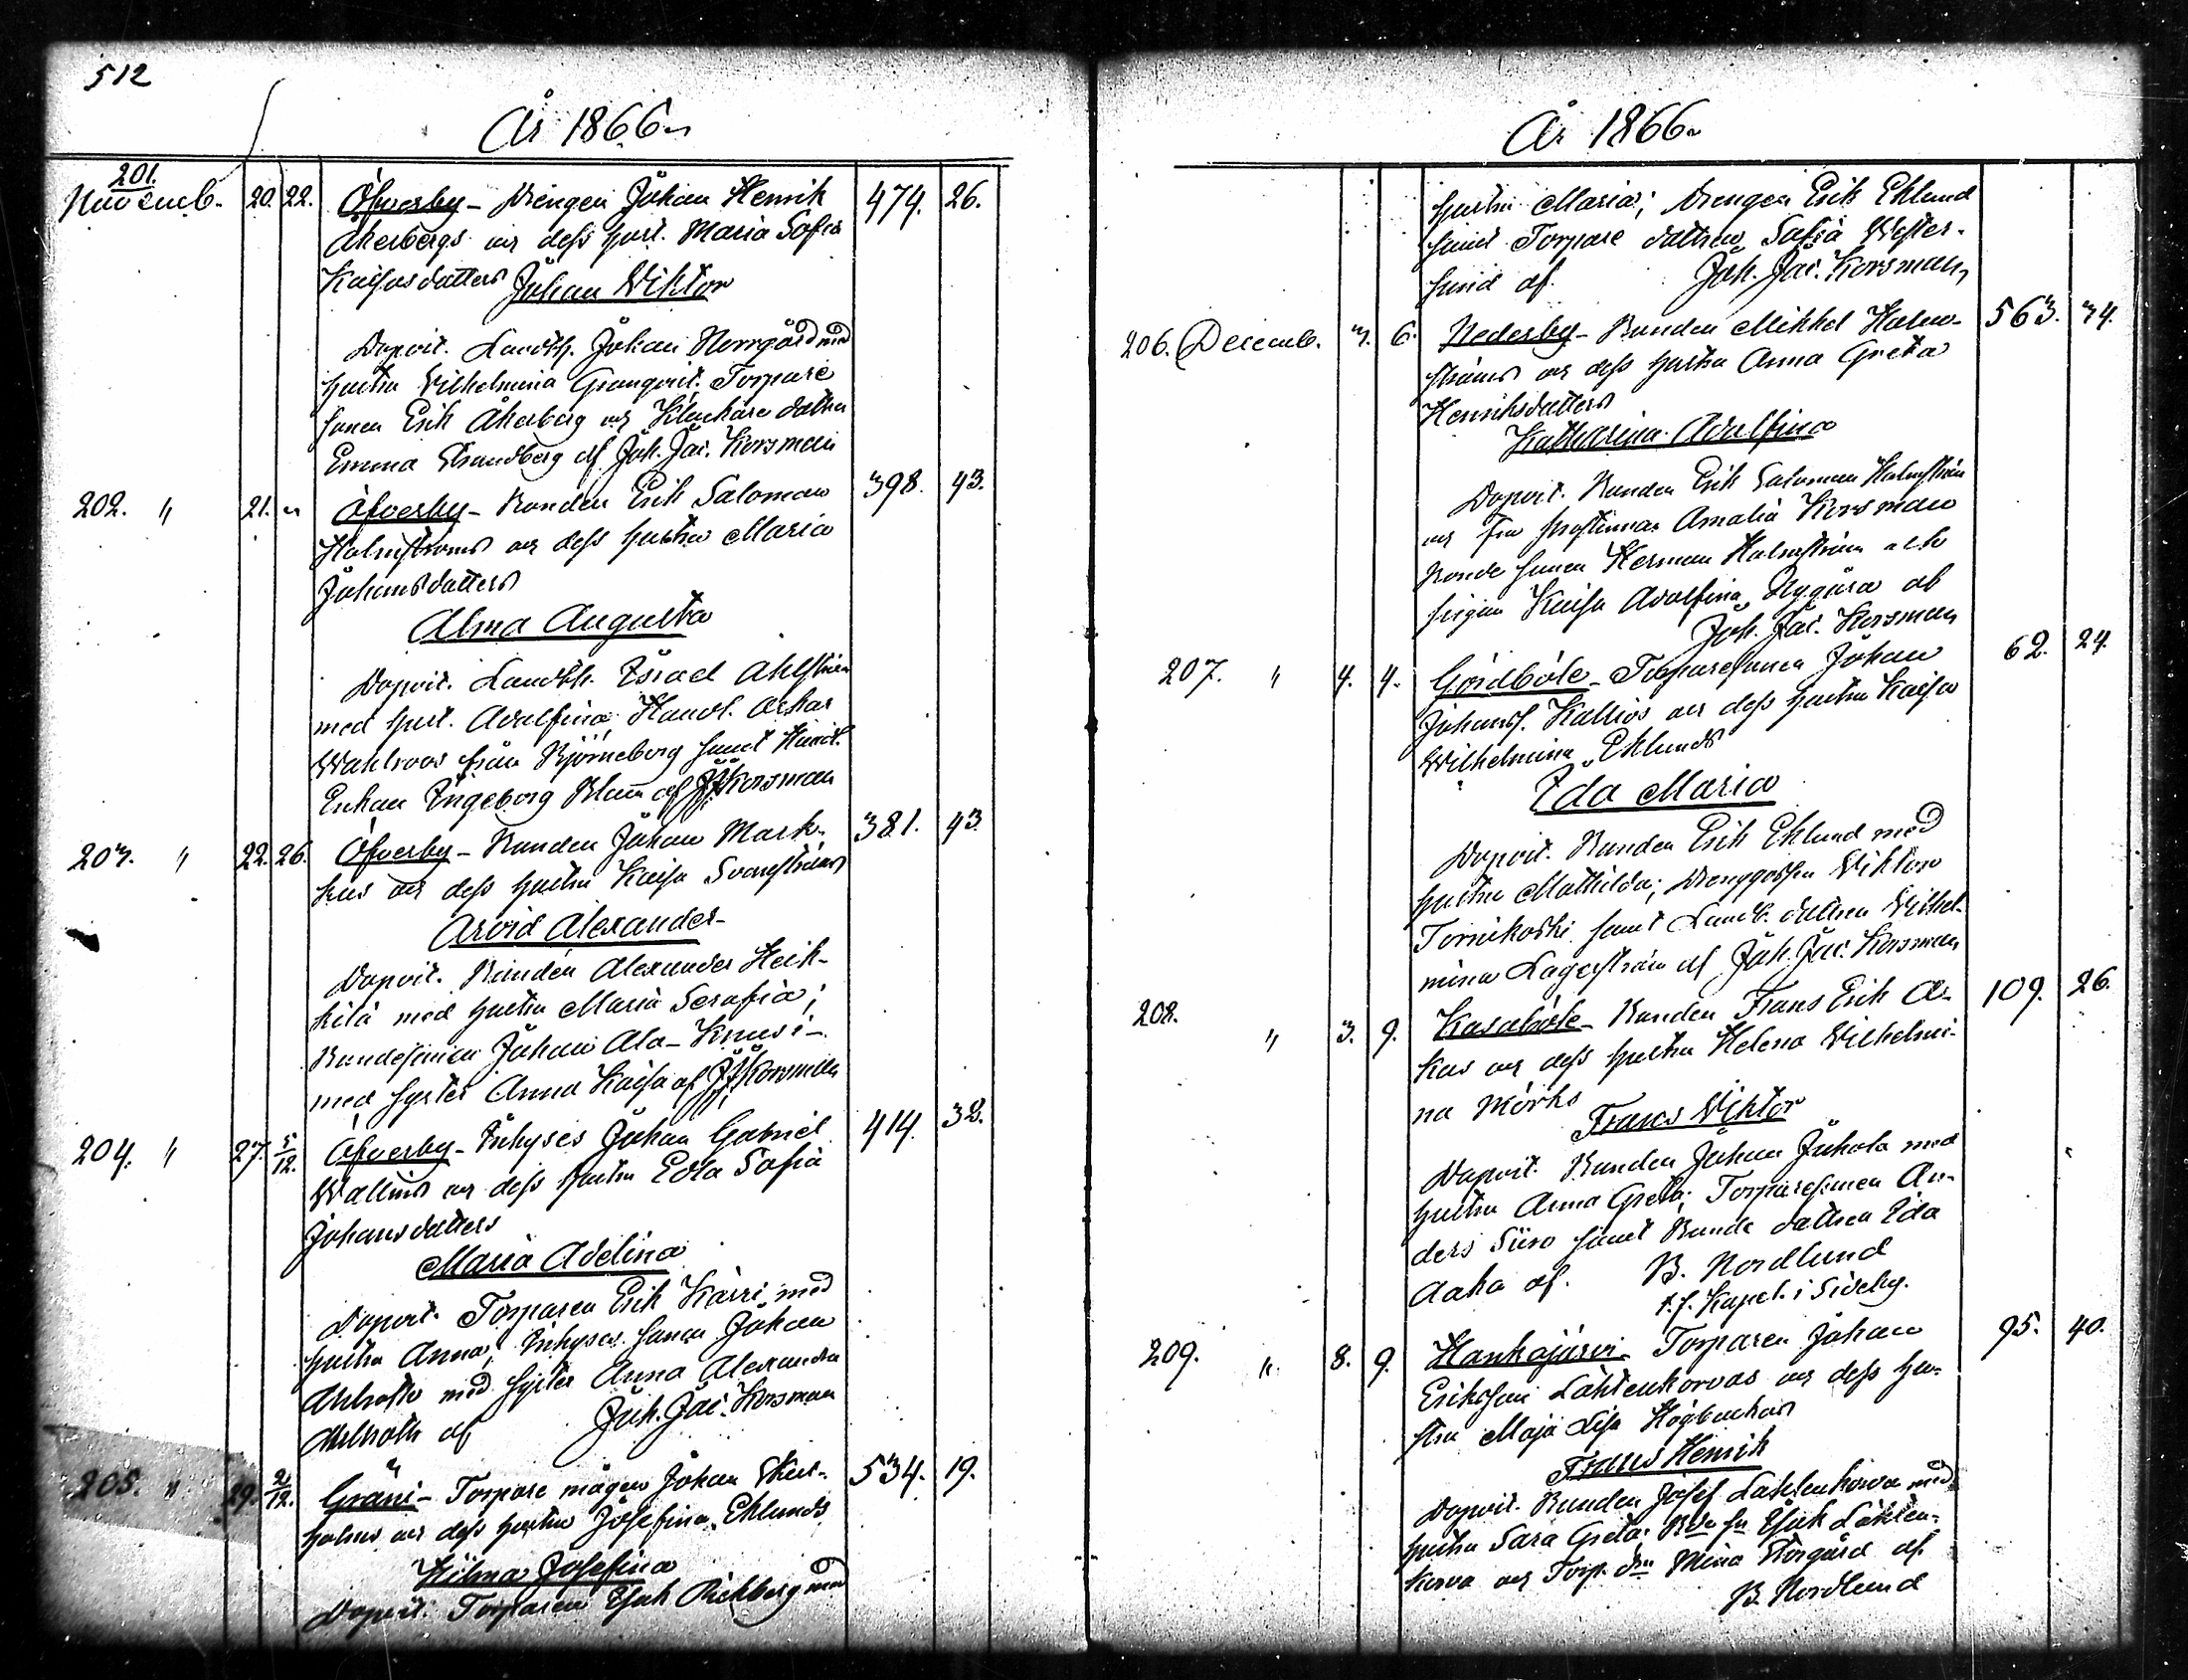 512
År 1866.
201.
Novemb. 20. 22. Öfverby - Drengen Johan Henrik 474. 26.
Åkerbergs och dess hust. Maria Sofia
Kaisasdatters Johan Wiktor
Dopvit. Landth. Johan Norrgård med
hustru Wilhelmina Granqvist. Torpare
sonen Erik Åkerberg och Klockare dottren
Emma Strandberg af Joh. Jac. Korsman
202. " 21. " Öfverby - Bonden Erik Salomon 398. 43.
Holmströms och dess hustru Maria
Johansdatters
Alma Augusta
Dopvit. Landth. Israel Ahlström
med hust. Adolfina; Handl. Oskar
Wahlroos från Björneborg samt
Enkan Ingeborg af J J Korsman
203. " 22. 26. Öfverby - Bonden Johan Mark- 381. 43.
kus och dess hustru Kaisa Svanströms
Arvid Alexander
Dopvit. Bonden Alexander Heik-
kilä med hustru Maria Serafia;
Bondesonen Johan Ala-Knusi
med syster Anna Kaisa af J J Korsman
204. " 27. 5/12. Öfverby - Inhyses Johan Gabriel 414. 38.
Wallins och dess hustru Edla Sofia
Johansdatters
Maria Adelina
Dopvit. Torparen Erik Kärri med
hustru Anna; Inhyses sonen Johan
Ahlroth med syster Anna Alexandra
Ahlroth af Joh. Jac. Korsman
205. " 29. 2/12. Gräni - Torpare mågen Johan Skut- 534. 19.
holms och dess hustru Josefina Ehlunds
Hilma Josefina
Dopvit. Torparen Isak Richberg med
År 1866.
hustru Maria; Drengen Erik Ehlund
samt Torpare dottren Sofia Wester-
lund af Joh. Jac. Korsman,
206. Decemb. 3. 6. Nederby - Bonden Mikkel Holm- 563. 34.
ströms och dess hustru Anna Greta
Henriksdatters
Katharina Adolfina
Dopvit. Bonden Erik Salomon Holmström
och fru Amalia Korsman
Bonde sonen Herman Holmström och
pigan Kaisa Adolfina Nygård af
Joh. Jac. Korsman
207. " 4. 4. Gördböle - Torparesonen Johan 62. 24.
Johanss. Kallios och dess hustru Kaisa
Wilhelmina Ehlunds
Ida Maria
Dopvit. Bonden Erik Ehlund med
hustru Mathilda; Drenggossen Wiktor
Tornikoski samt Landb. dottren Wilhel-
mina Lagerström af Joh. Jac. Korsman
208. " 3. 9. Kasaböle - Bonden Frans Erik A- 109. 26.
kas och dess hustru Helena Wilhelmi-
na Mörks
Frans Wiktor
Dopvit. Bonden Johan Juhola med
hustru Anna Greta; Torparesonen An-
ders Siiro samt Bonde dottren Ida
Aaka af B. Nordlund
t. f. Kapel. i Sideby.
209. " 8. 9. Honkajärvi - Torparen Johan 95. 40.
Erikssons Lähtenkorvas och dess hu-
stru Maja Lisa Högbackas
Frans Henrik
Dopvit. Bonden Josef Lähtenkorva med
hustru Sara Greta; Isak Lähten-
korva och Torp. dn Mina Storgård af
B. Nordlund